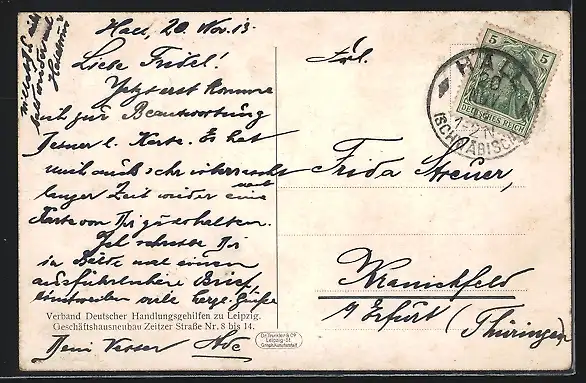 Hall, 20. Nov. 13.
Liebe Fridel!
Jetzt erst komme
ich zur Beantwortung
Deiner l. Karte. Es hat
mich auch sehr
langer Zeit wieder mal eine
Karte von Dir zu erhalten.
Ich schreibe Dir
in Bälde mal einen
ausführlichen Brief,
einstweilen viele herzl. Grüße
Verband Deutscher Handlungsgehilfen zu Leipzig.
Geschäftshausneubau Zeitzer Straße Nr. 8 bis 14.
Dein Ade
Dr. Trenkler & Co.
Leipzig-St.
Graph. Kunstanstalt
Frl.
Frida Streuer,
Kranichfeld
b/ Erfurt
(Thüringen)
5 5
DEUTSCHES REICH
HALL
20
1-2 N.
(SCHWÄBISCH)